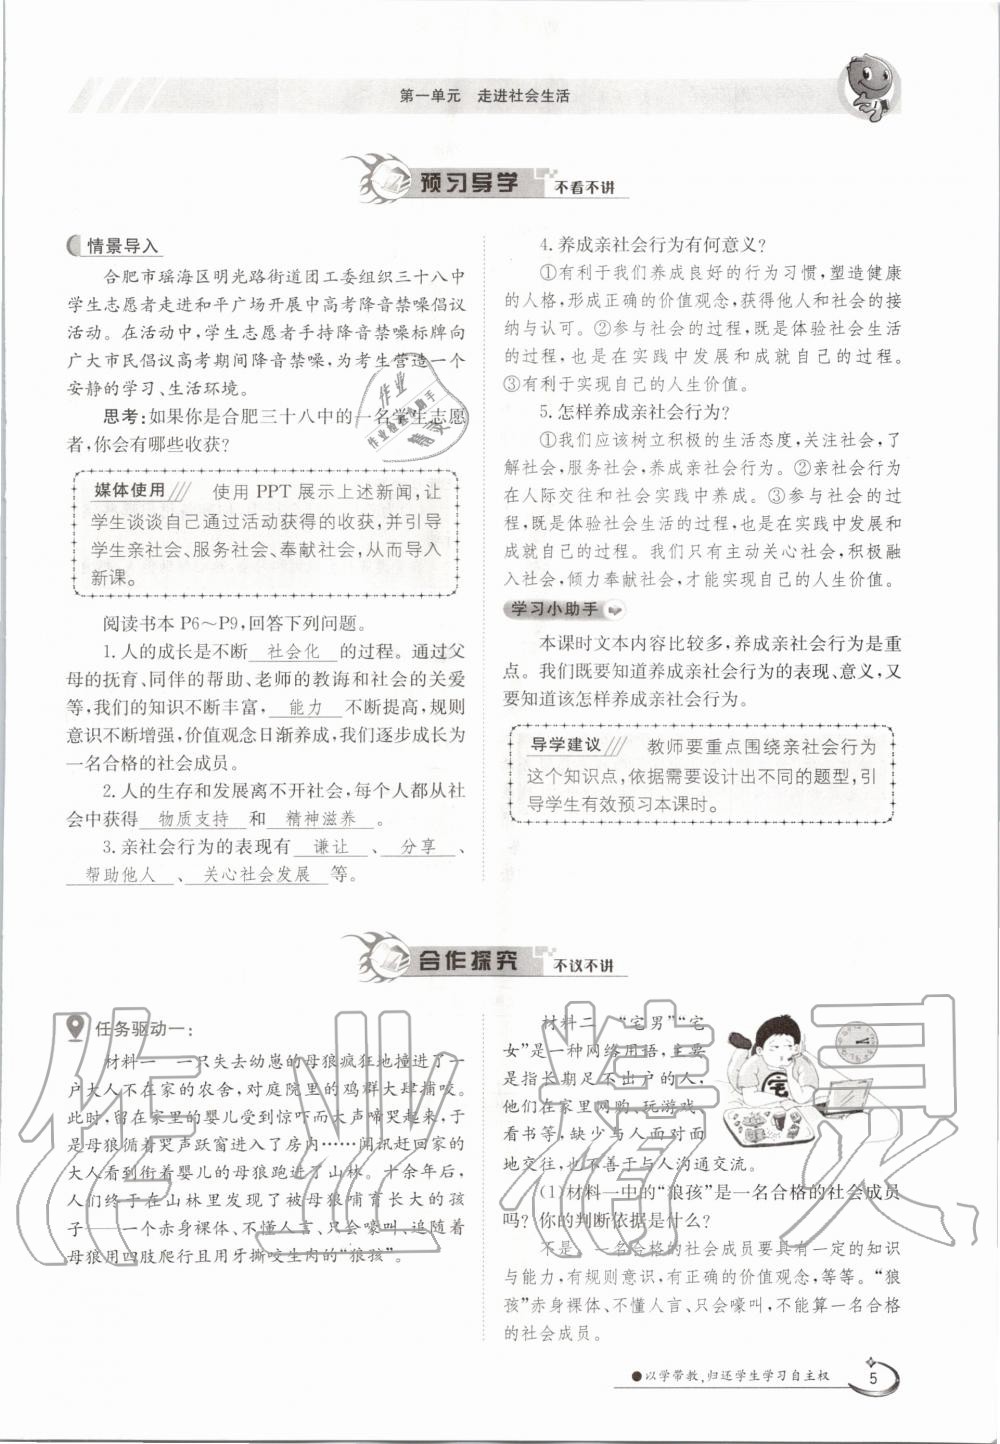 第一单元 走进社会生活
预习导学 不看不讲
情景导入
合肥市瑶海区明光路街道团工委组织三十八中
学生志愿者走进和平广场开展中高考降音禁噪倡议
活动。在活动中,学生志愿者手持降音禁噪标牌向
广大市民倡议高考期间降音禁噪,为考生营造一个
安静的学习、生活环境。
思考:如果你是合肥三十八中的一名学生志愿
者,你会有哪些收获?
媒体使用 使用 PPT 展示上述新闻,让
学生谈谈自己通过活动获得的收获,并引导
学生亲社会、服务社会、奉献社会,从而导入
新课。
阅读书本 P6～P9,回答下列问题。
1.人的成长是不断 社会化 的过程。通过父
母的抚育、同伴的帮助、老师的教诲和社会的关爱
等,我们的知识不断丰富, 能力 不断提高,规则
意识不断增强,价值观念日渐养成,我们逐步成长为
一名合格的社会成员。
2.人的生存和发展离不开社会,每个人都从社
会中获得 物质支持 和 精神滋养 。
3.亲社会行为的表现有 谦让 、 分享 、
帮助他人 、 关心社会发展 等。
4.养成亲社会行为有何意义?
①有利于我们养成良好的行为习惯,塑造健康
的人格,形成正确的价值观念,获得他人和社会的接
纳与认可。②参与社会的过程,既是体验社会生活
的过程,也是在实践中发展和成就自己的过程。
③有利于实现自己的人生价值。
5.怎样养成亲社会行为?
①我们应该树立积极的生活态度,关注社会,了
解社会,服务社会,养成亲社会行为。②亲社会行为
在人际交往和社会实践中养成。③参与社会的过
程,既是体验社会生活的过程,也是在实践中发展和
成就自己的过程。我们只有主动关心社会,积极融
入社会,倾力奉献社会,才能实现自己的人生价值。
学习小助手
本课时文本内容比较多,养成亲社会行为是重
点。我们既要知道养成亲社会行为的表现、意义,又
要知道该怎样养成亲社会行为。
导学建议 教师要重点围绕亲社会行为
这个知识点,依据需要设计出不同的题型,引
导学生有效预习本课时。
合作探究 不议不讲
任务驱动一:
材料一 一只失去幼崽的母狼疯狂地撞进了一
户大人不在家的农舍,对庭院里的鸡群大肆捕咬。
此时,留在家里的婴儿受到惊吓而大声啼哭起来,于
是母狼循着哭声跃窗进入了房内……闻讯赶回家的
大人看到衔着婴儿的母狼跑进了山林。十余年后,
人们终于在山林里发现了被母狼哺育长大的孩
子——一个赤身裸体、不懂人言、只会嚎叫、追随着
母狼用四肢爬行且用牙撕咬生肉的“狼孩”。
材料二 “宅男”“宅
女”是一种网络用语,主要
是指长期足不出户的人,
他们在家里网购、玩游戏、
看书等,缺少与人面对面
地交往,也不善于与人沟通交流。
(1)材料一中的“狼孩”是一名合格的社会成员
吗? 你的判断依据是什么?
不是。一名合格的社会成员要具有一定的知识
与能力,有规则意识,有正确的价值观念,等等。“狼
孩”赤身裸体、不懂人言、只会嚎叫,不能算一名合格
的社会成员。
●以学带教,归还学生学习自主权
5
作业精灵